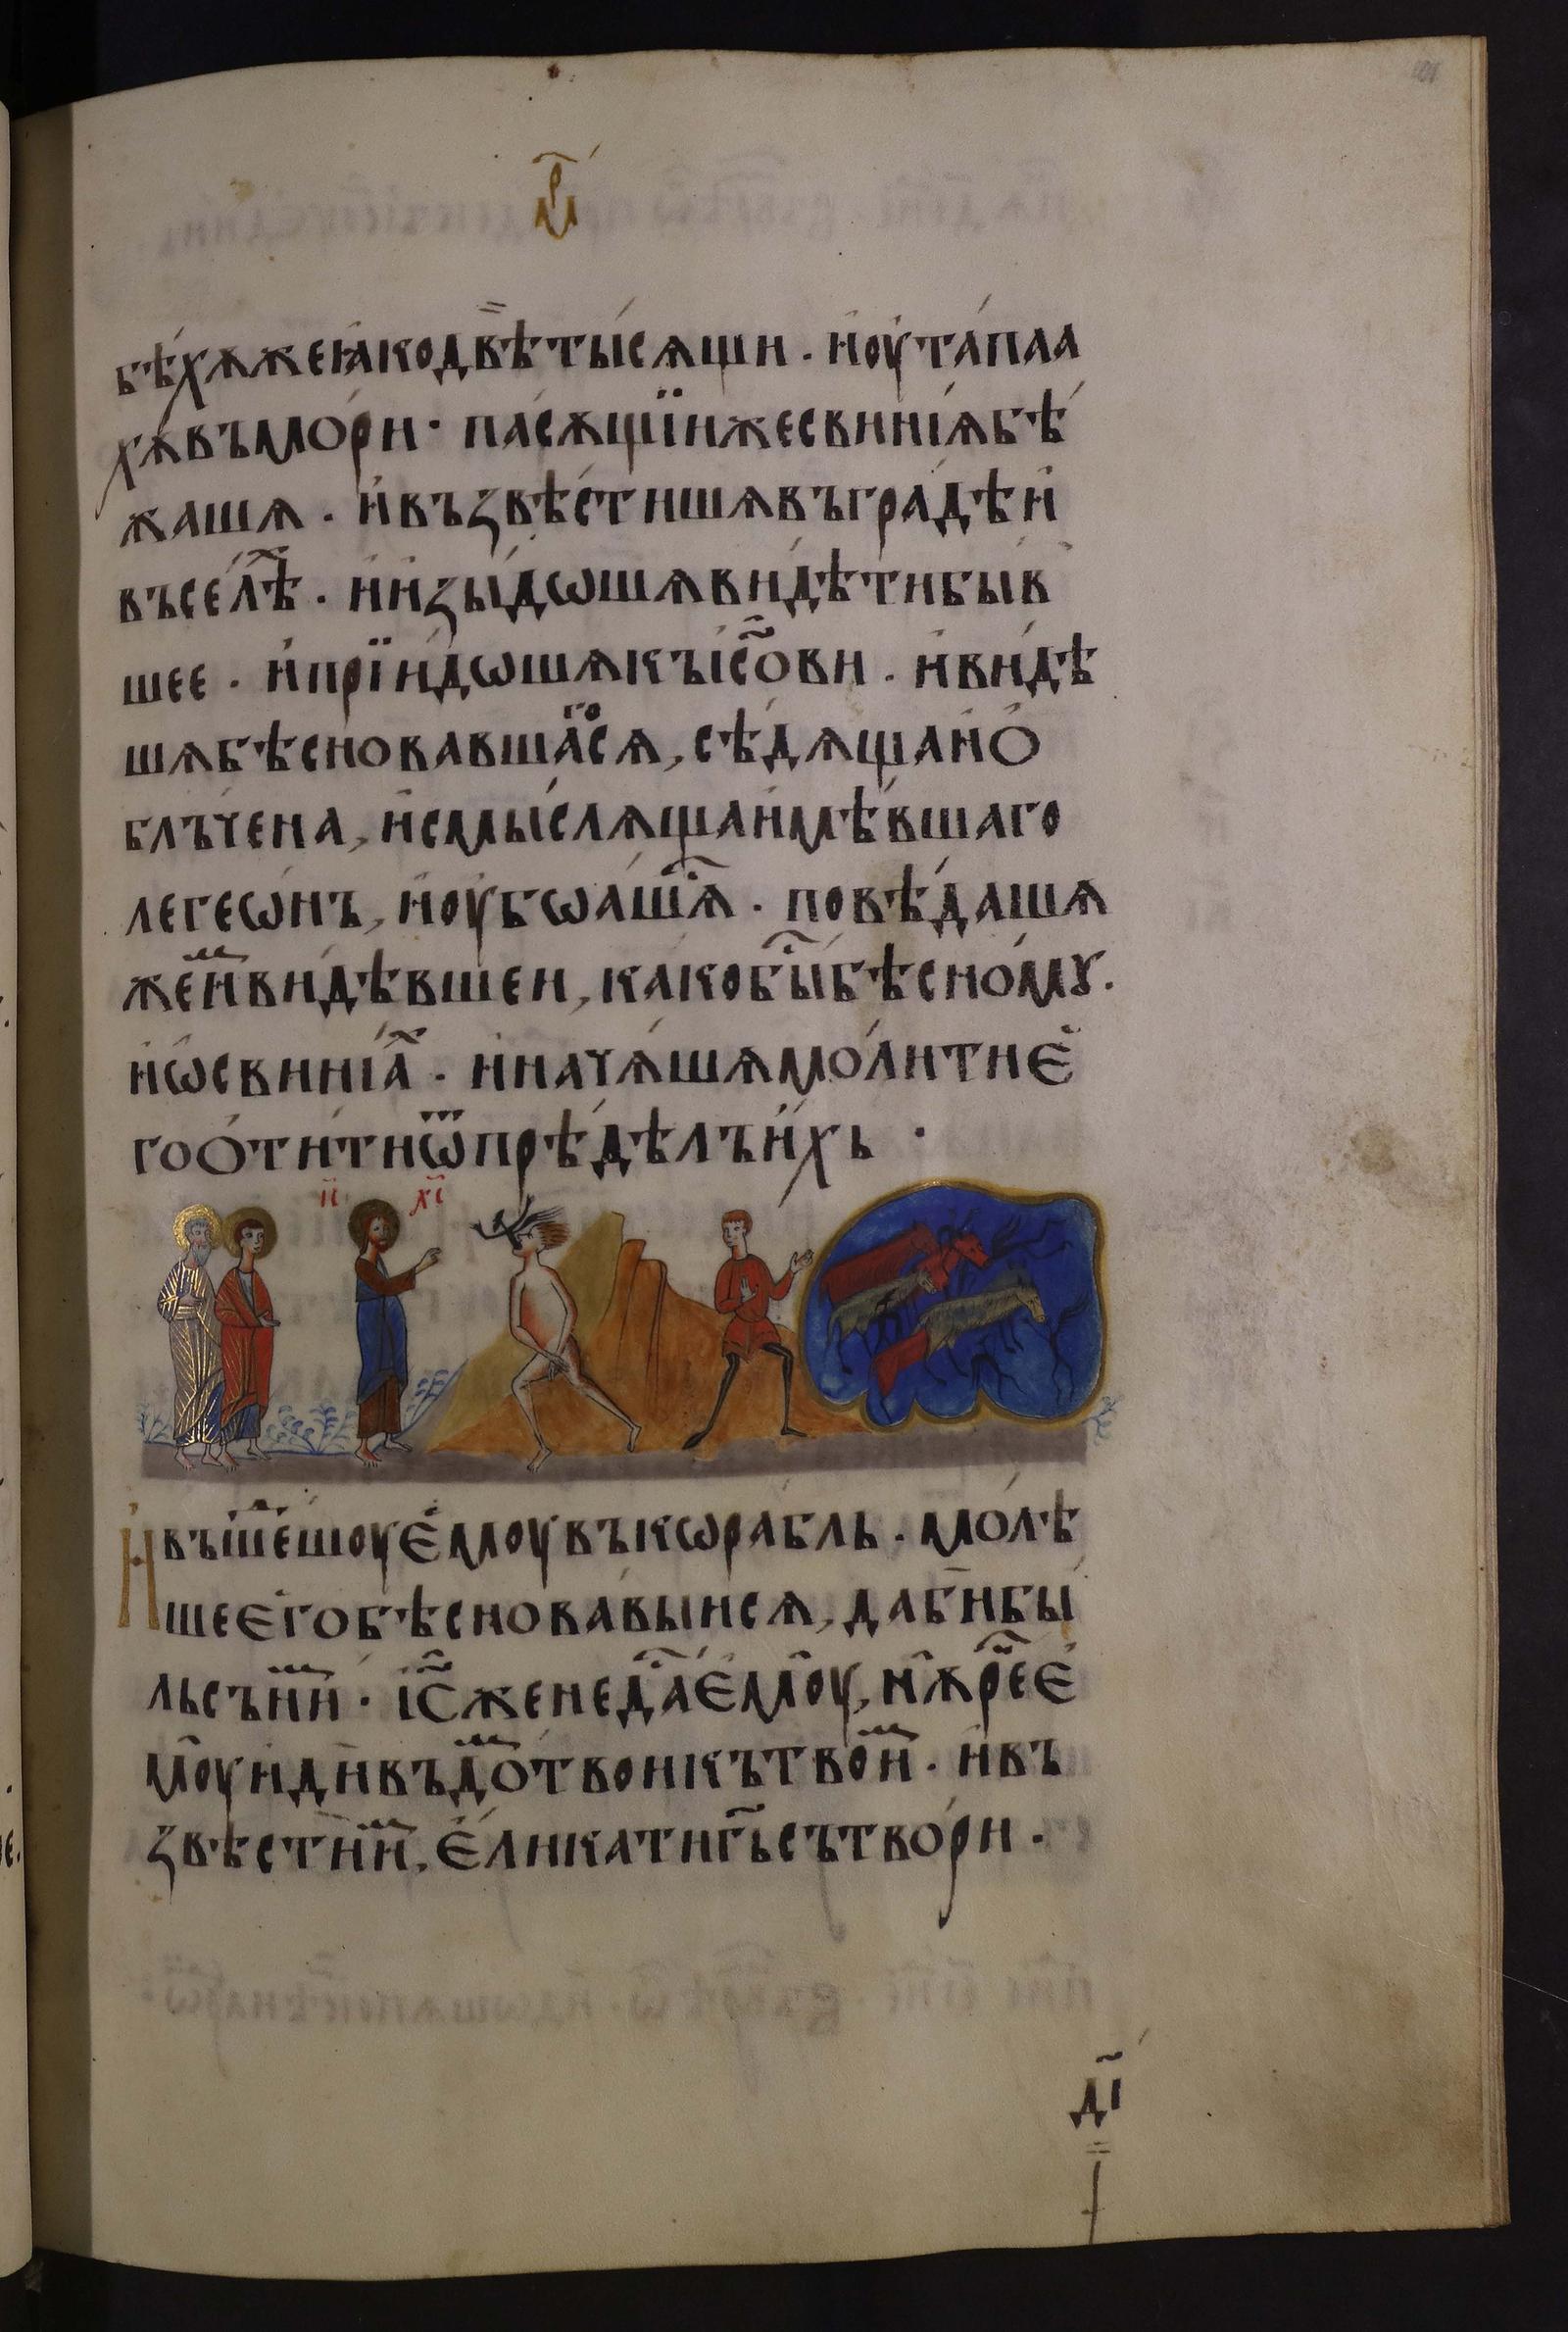 м҃р
бѣ́хѫжеꙗ҆кодв̾ѣтꙑ́сѧщи · и҆оу҆та́паа
хѫвъмо́ри · па́сѫщїижесвинїѧ҆бѣ́
жашѧ · и҆въꙁвѣ́стишѧвъгра́дѣи҆
въсе́лѣ҇ · и҆иꙁꙑ́дѡшѧви́дѣтибꙑ́в
шее · и҆прїи́дѡшѧкъі҆с҃ови · и҆ви́дѣ
шѧбѣсновавшаⷢ҇ⷪсѧ, сѣ́дѧщаи҆ѻ҆
блъ́чена, и҆смꙑ́слѧщаи҆мѣ́вшаго
легеѡ́нъ, и҆оу҆бѡа́шⷭ҇ѧ · повѣ́дашѧ
жеиⷨви́дѣвшеи, ка́кобꙑⷭ҇бѣсно́мꙋ ·
и҆ѡ҆свинїаⷯ · и҆нача́шѧмо́литиє҆
гоѻ҆ти́тиѿпрѣ́дѣлъи҆́хь ·
і҃с х҃с
И҆въшеⷣшоує҆моувъкѡра́бль · мо́лѣ
шеє҆гобѣснова́вꙑисѧ, даби҆бꙑ́
льсъниⷨ · і҆с҃женедаⷭ҇є҆моу, нѫрⷱ҇ее҆
моуи҆ди́въдоⷨтвоикътвоиⷨ · и҆въ
ꙁвѣстиⷨи, є҆ли́катиг҃ьсътво́ри ·
д҃і